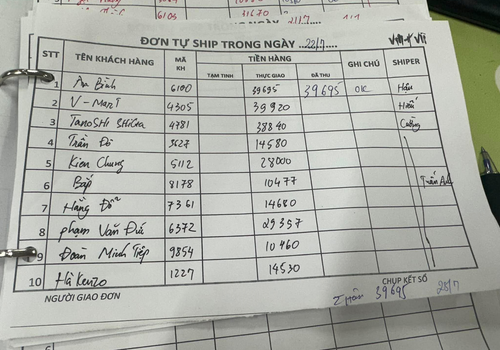 ĐƠN TỰ SHIP TRONG NGÀY 22/7
STT TÊN KHÁCH HÀNG MÃ KH TIỀN HÀNG GHI CHÚ SHIPER
TẠM TÍNH THỰC GIAO ĐÃ THU
1 An Bình 6100 39695 39695 OK Hân
2 V-Mart 4305 39920
3 TANOSHI 4781 38840 Cường
4 Trần Đô 3627 14580
5 Kien Chung 5112 28000
6 Bắp 8178 10477 Trần
7 Hằng Đỗ 7361 14680
8 phạm Văn 6372 29357
9 Đoàn Minh Tiệp 9854 10460
10 Hà Kenzo 1227 14530
NGƯỜI GIAO ĐƠN CHỤP KẾT SỐ
39695